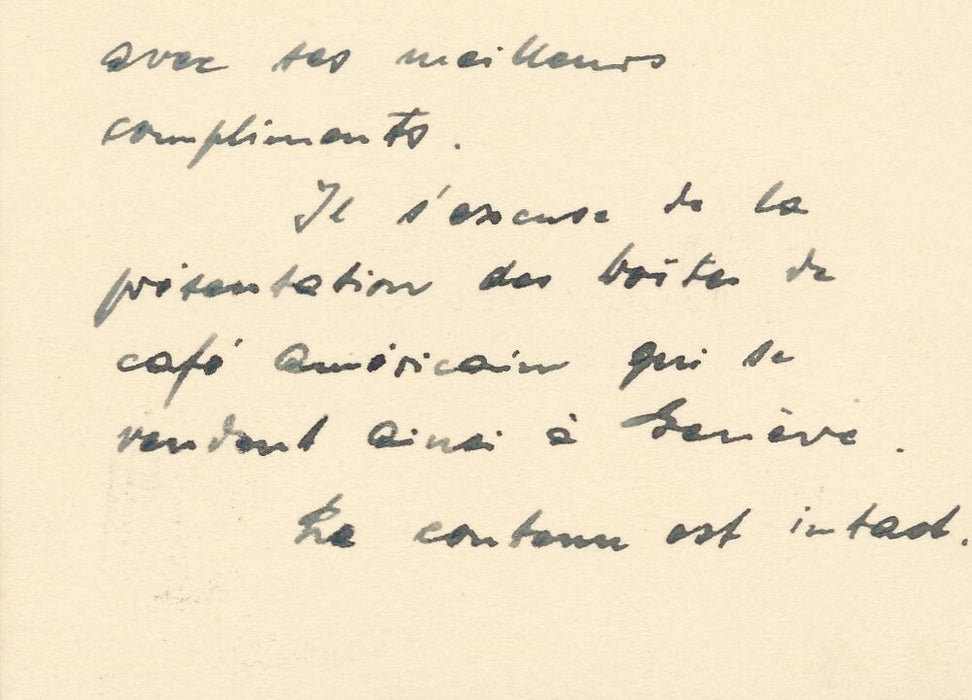 avec ses meilleurs
compliments.
Il s'excuse de la
présentation des boîtes de
café américain qui se
vendent ainsi à Genève.
Le contenu est intact.